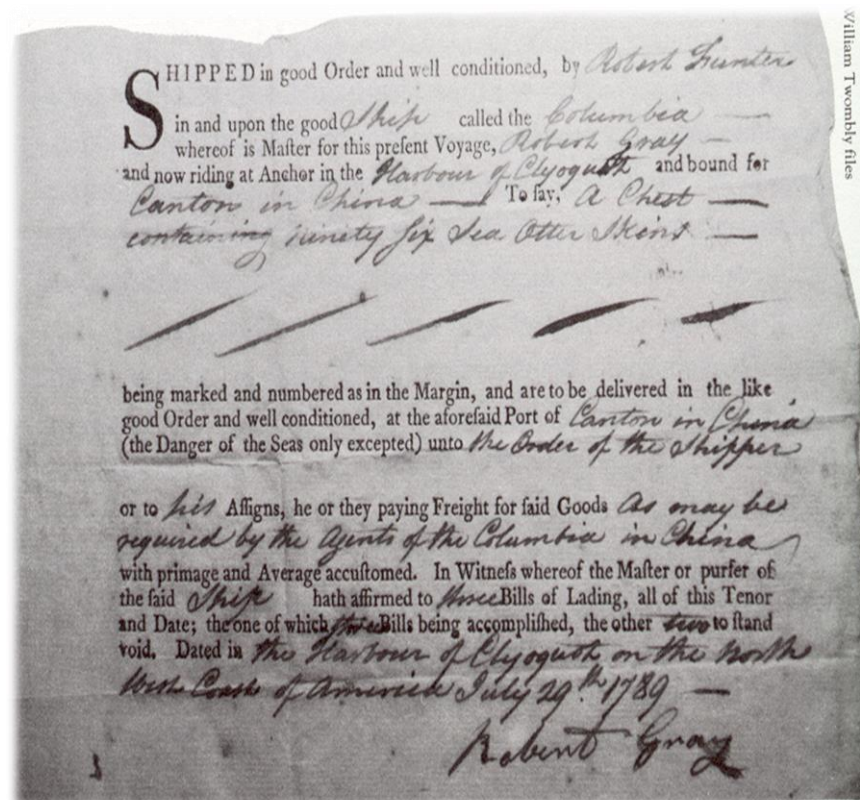 SHIPPED in good Order and well conditioned, by Robert Funter
in and upon the good Ship called the Columbia —
whereof is Maſter for this preſent Voyage, Robert Gray —
and now riding at Anchor in the Harbour of Clyoquot and bound for
Canton in China — To ſay, A Chest —
containing ninety Six Sea Otter Skins —
being marked and numbered as in the Margin, and are to be delivered in the like
good Order and well conditioned, at the aforeſaid Port of Canton in China
(the Danger of the Seas only excepted) unto the Order of the Shipper
or to his Aſſigns, he or they paying Freight for ſaid Goods As may be
required by the Agents of the Columbia in China
with primage and Average accuſtomed. In Witneſs whereof the Maſter or purſer of
the ſaid Ship hath affirmed to three Bills of Lading, all of this Tenor
and Date; the one of which three Bills being accompliſhed, the other two to ſtand
void. Dated in the Harbour of Clyoquot on the North
West Coast of America July 29th 1789 —
Robert Gray
William Twombly files